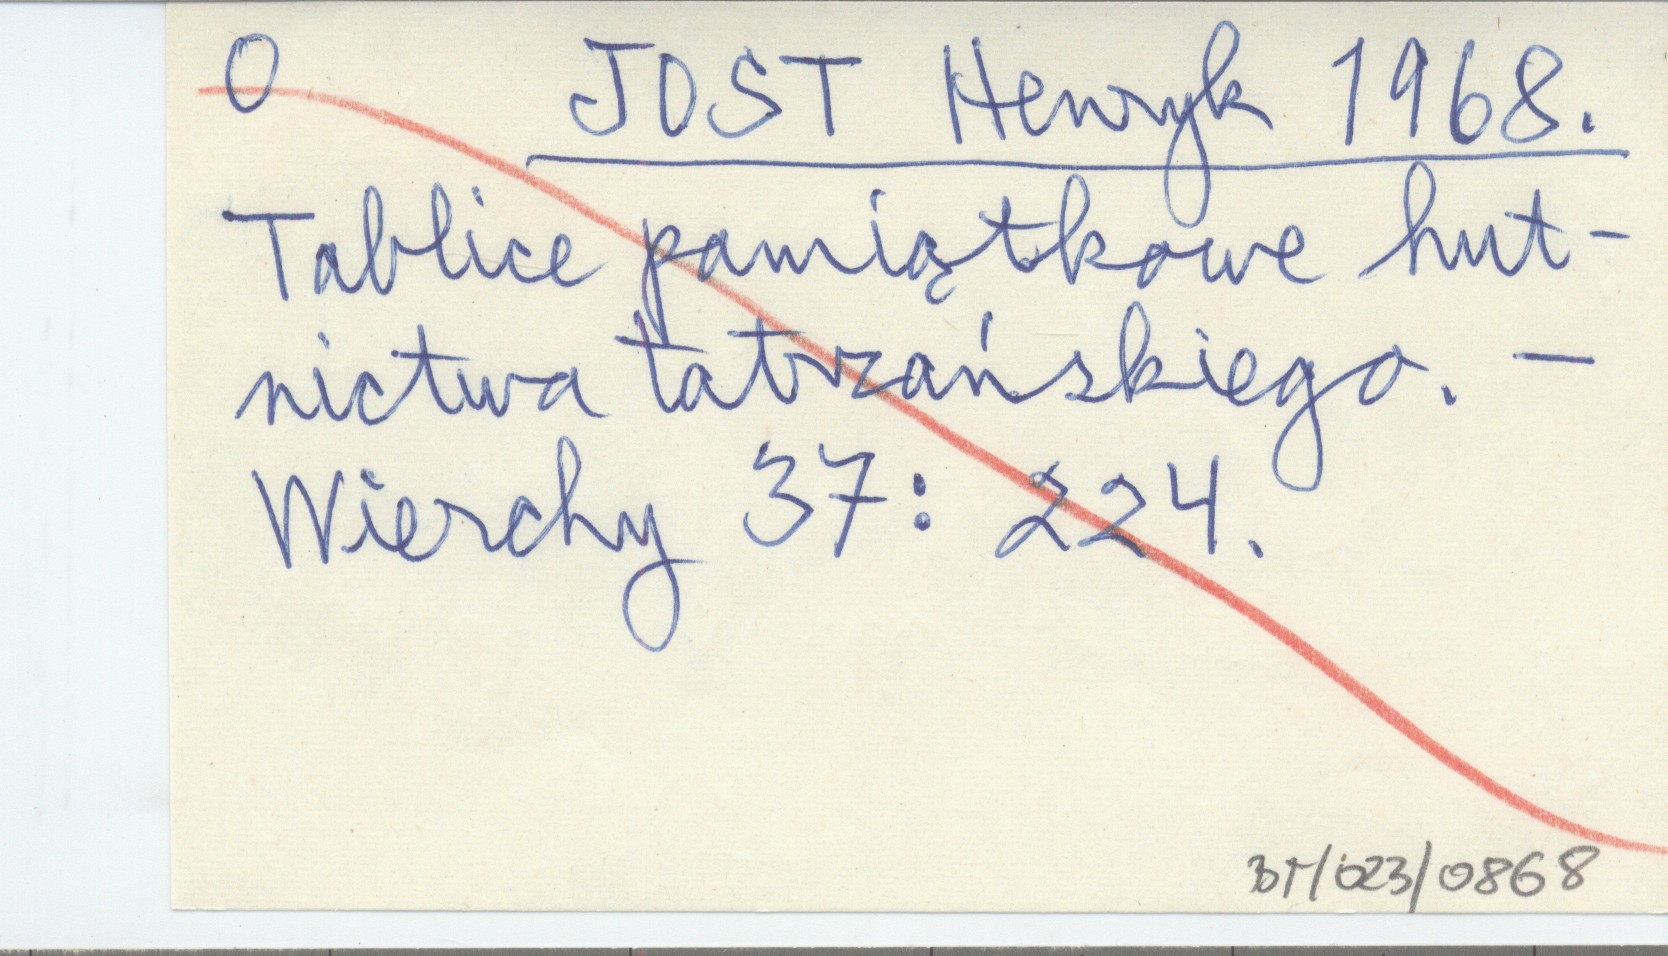 O JOST Henryk 1968.
Tablice pamiątkowe hut-
nictwa tatrzańskiego. —
Wierchy 37: 224.
BT/023/0868